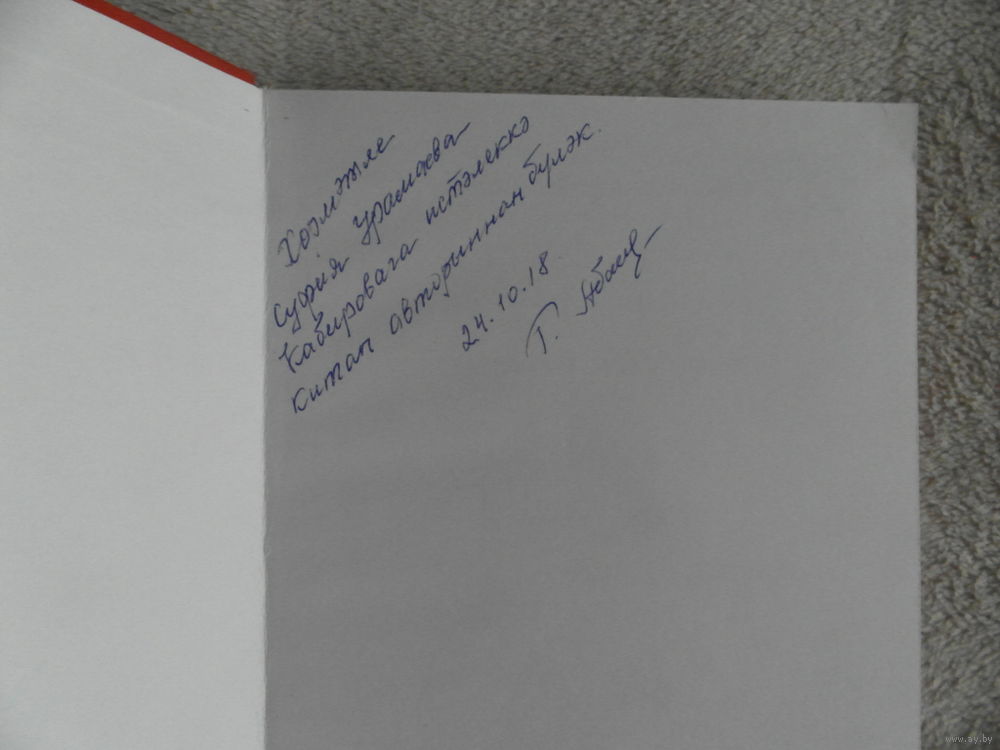 Хөрмәтле
Суфия
Кабировага истәлеккә
китап авторыннан бүләк.
24.10.18.
Г.
www.ay.by